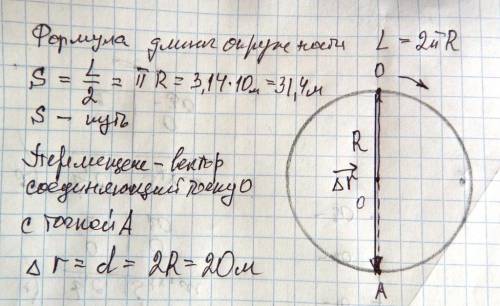 Формула длины окружности L = 2πR
S = L/2 = πR = 3,14·10м = 31,4м
S – путь
Перемещение – вектор
соединяющий точку O
с точкой A
Δr = d = 2R = 20м
O
R
Δr⃗
O
A